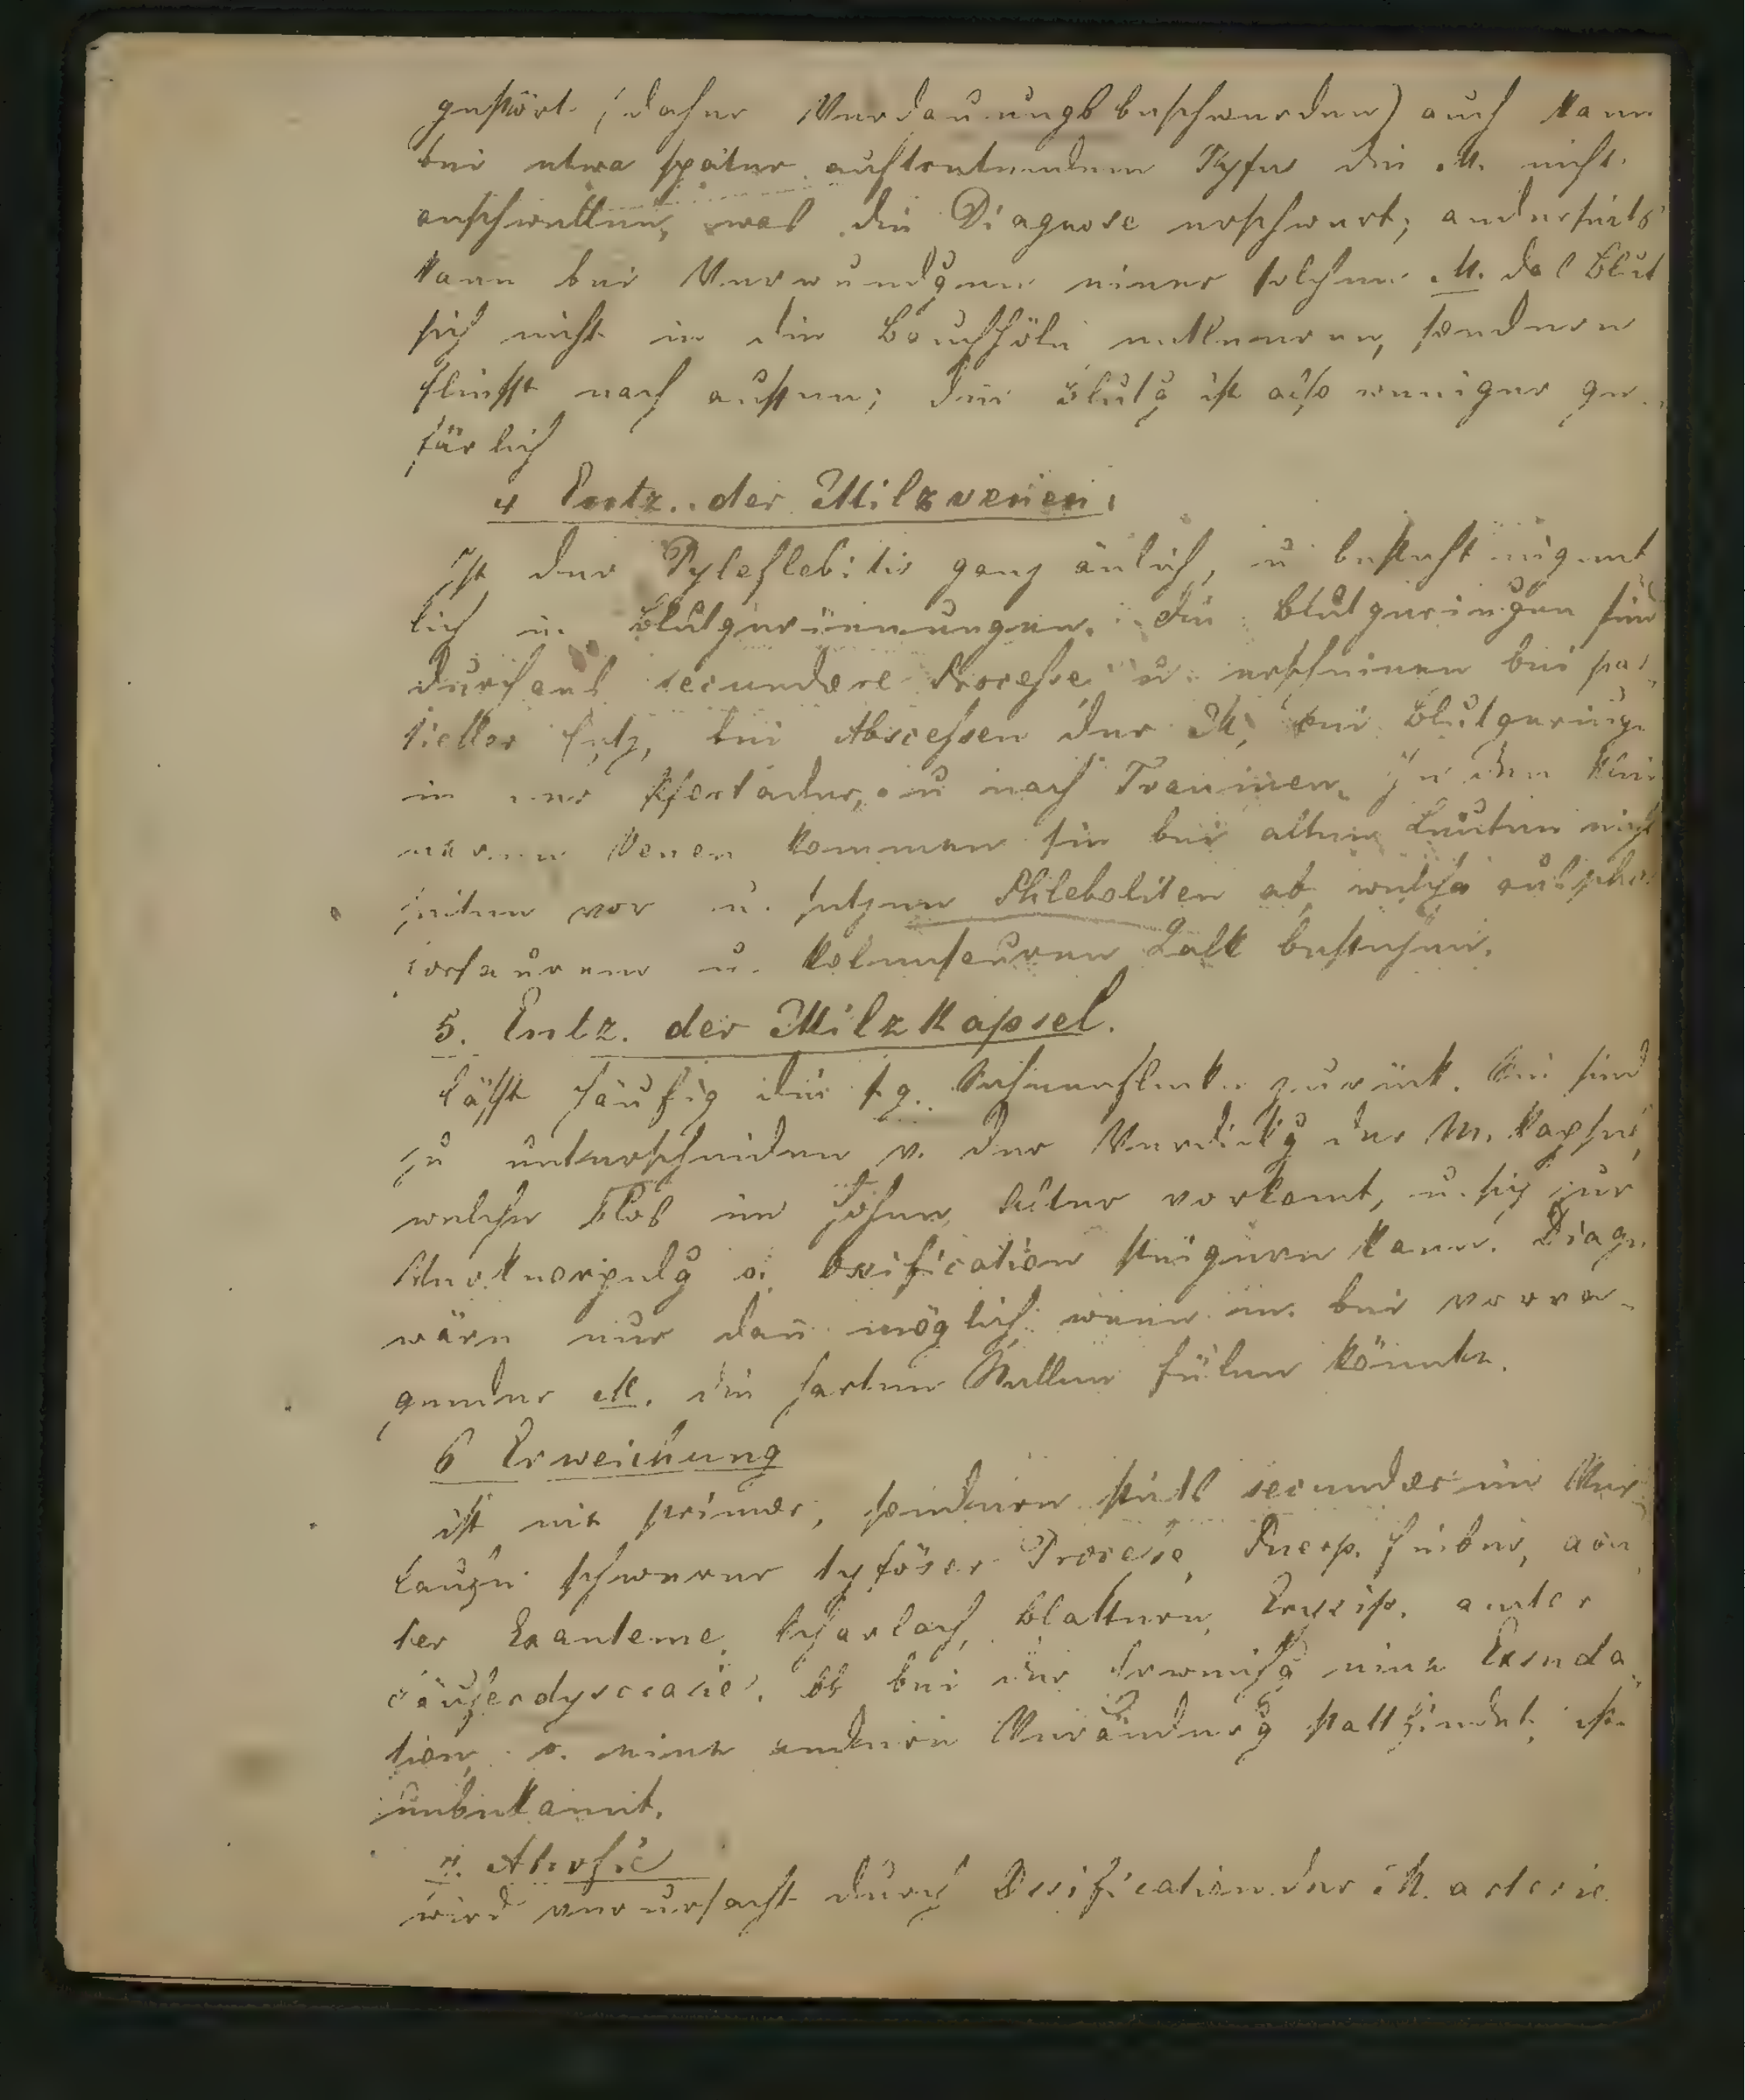 gestört (daher Verdauungsbeschwerden) auch kann
bei etwa später auftretendem Tyfus die M. nicht
anschwellen, was die Diagnose erschwert; anderseits
kann bei Verwundgen einer solchen M. das Blut
sich nicht in die Bauchhöle entleeren, sondern
fliesst nach aussen; die Blutg ist also weniger ge-
färlich
4 Entz. der Milzvenen.
Ist der Pyleflebitis ganz änlich, u besteht eigent
lich in Blutgerinnungen. Die Blutgeringen sind
durchaus secundere Processe u. erscheinen bei par
tieller Entz, bei Abscessen der M, bei Blutgering.
in der Pfortader, u nach Traumen. In den klei
neren Venen kommen sie bei alten Leuten nicht
selten vor u. setzen Phleboliten ab, welche aus phos
forsaurem u. kolensaurem Kalk bestehen.
5. Entz. der Milzkapsel.
lässt häufig die s.g. Sehnenflecke zurück. Sie sind
zu unterscheiden v. der Verdickg der M. kapsel,
welche blos im hohen Alter vorkomt, u. sich zur
Verknorpelg o. Ossification steigern kann. Diagn.
wäre nur dan möglich wenn m. bei vorra-
gender M. die harten Stellen fülen könnte.
6 Erweichung
ist nie primer, sondern stets secunder im Ver
laufe schwerer tyföser Processe, Puerp. fieber, acu
ter Exanteme, Scharlach, Blattern, Erysip. acuter
Säuferdyscrasie. Ob bei der Erweichg eine Exsuda
tion, o. eine andere Veränderg stattfindet, ist
unbekannt.
7. Atrofie
wird verursacht durch Ossification der M. arterie